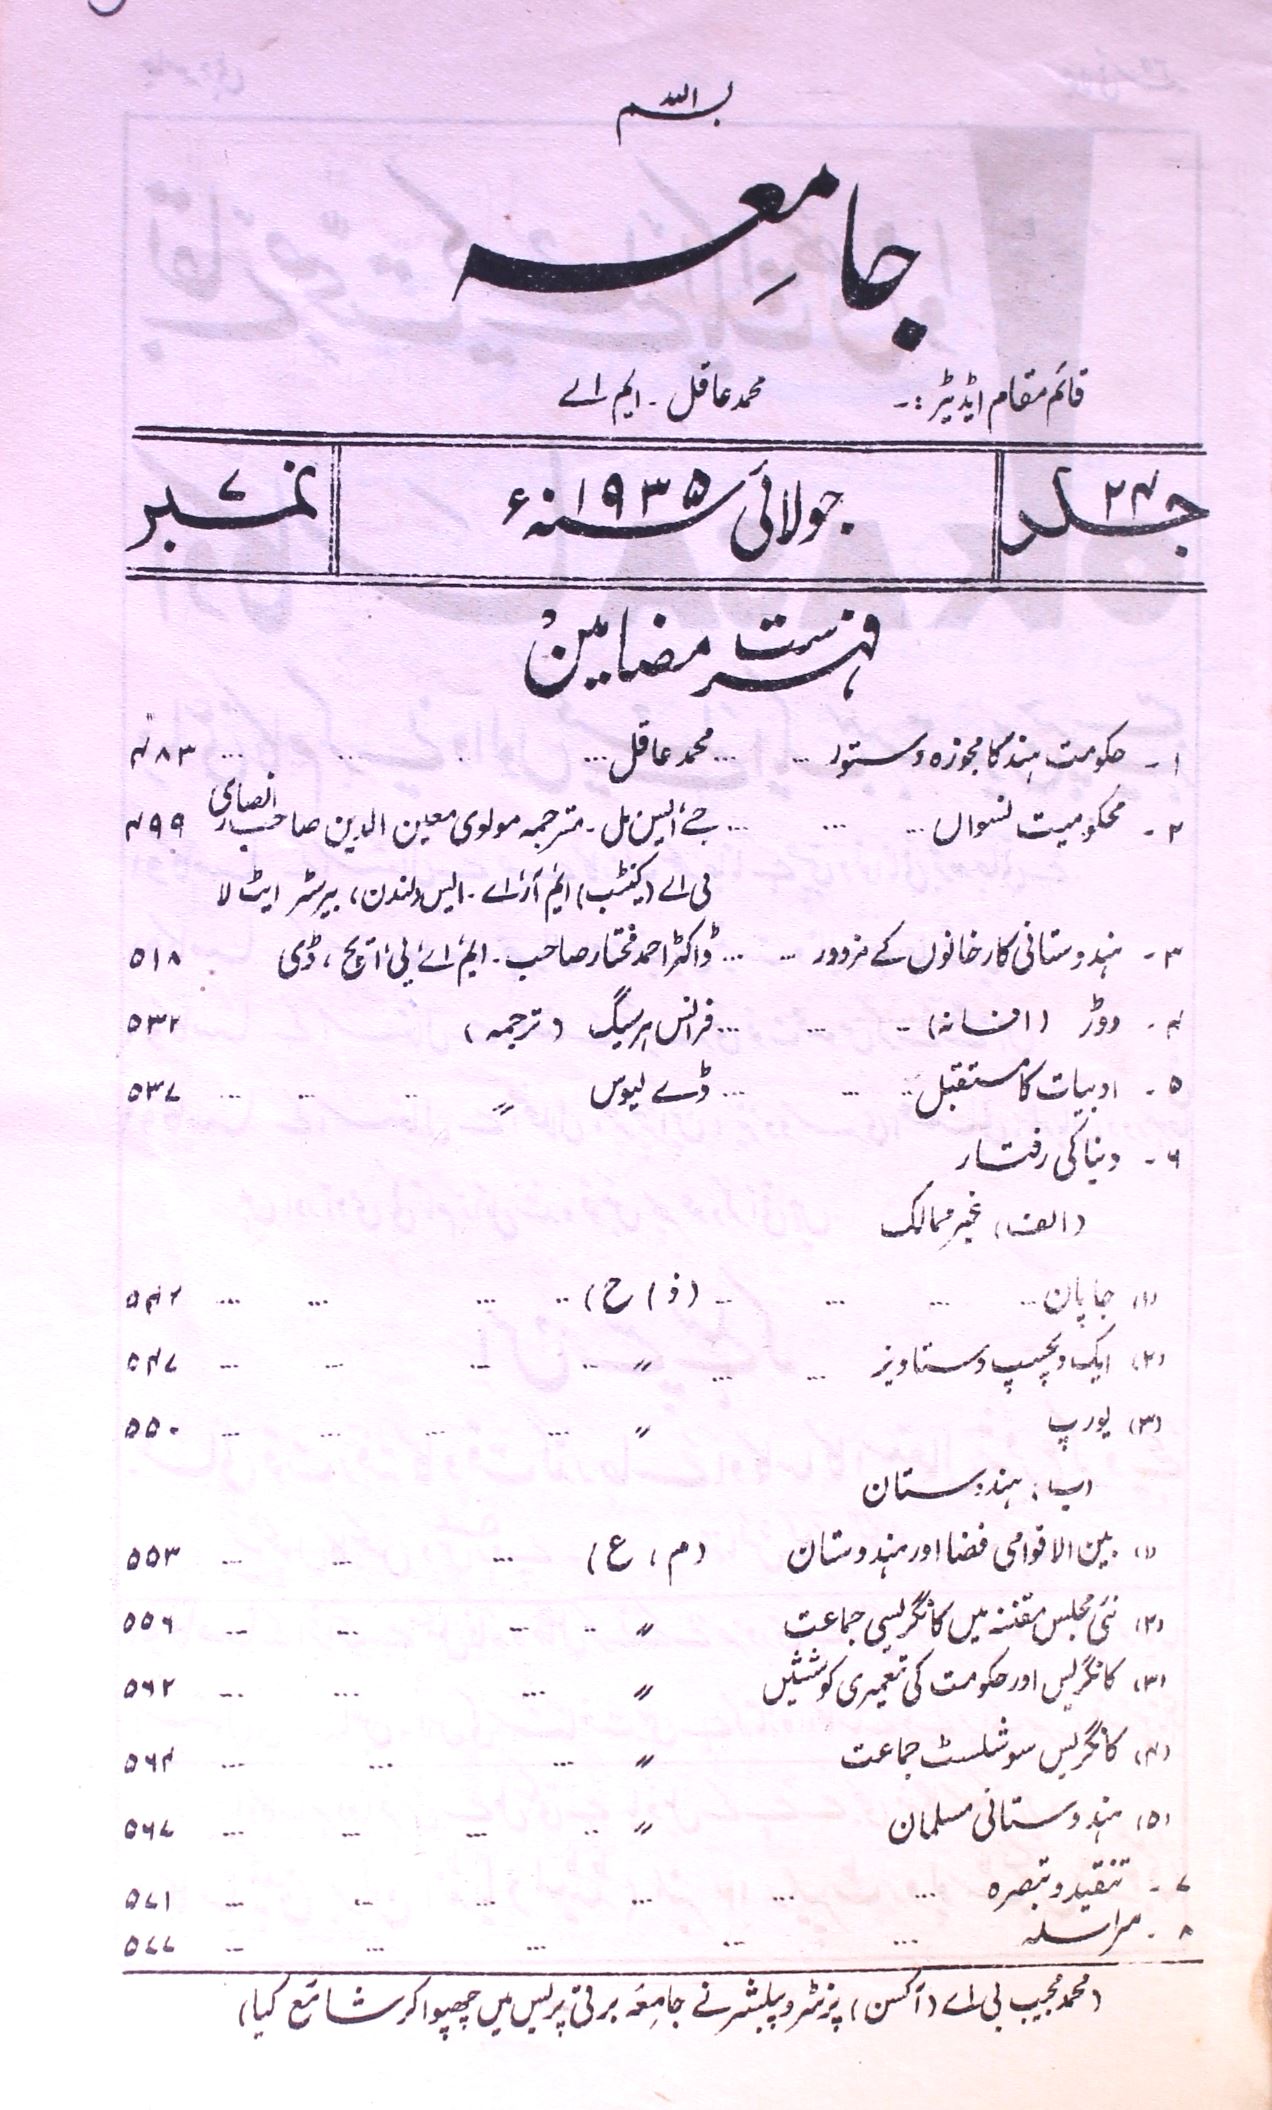 بسم اللہ
جامعہ
قائم مقام ایڈیٹر:- محمد عاقل۔ ایم اے
جلد ۲۴ جولائی سنہ ۱۹۳۵ء نمبر ۷
فہرست مضامین
۱۔ حکومت ہند کا مجوزہ دستور ... ... محمد عاقل ... ... ... ... ۴۸۳
۲۔ محکومیت نسواں ... ... ... جے ایس مل۔ مترجمہ مولوی معین الدین صاحب انصاری ۴۹۹
بی اے (کینٹب) ایم آر اے۔ ایس (لندن)، بیرسٹر ایٹ لا
۳۔ ہندوستانی کارخانوں کے مزدور ... ... ڈاکٹر احمد مختار صاحب۔ ایم اے پی ایچ، ڈی ۵۱۸
۴۔ دوڑ (افسانہ) ... ... ... فرانس ہرسیگ (ترجمہ) ۵۳۲
۵۔ ادبیات کا مستقبل ... ... ... ڈے لیوس " ... ... ... ۵۳۷
۶۔ دنیا کی رفتار
(الف) غیر ممالک
(۱) جاپان ... ... ... ... (ذ) ح) ... ... ... ... ۵۴۲
(۲) ایک دلچسپ دستاویز ... ... " ... ... ... ... ۵۴۷
(۳) یورپ " ... ... ... ... ۵۵۰
(ب) ہندوستان
(۱) بین الاقوامی فضا اور ہندوستان (م، ع) ... ... ... ۵۵۳
(۲) نئی مجلس مقننہ میں کانگریسی جماعت " ... ... ... ... ۵۵۶
(۳) کانگریس اور حکومت کی تعمیری کوششیں " ... ... ... ۵۶۲
(۴) کانگریس سوشلسٹ جماعت " ... ... ... ۵۶۴
(۵) ہندوستانی مسلمان " ... ... ... ... ۵۶۷
۷۔ تنقید و تبصرہ ... ... ... ... ... ... ۵۷۱
۸۔ مراسلہ ... ... ... ... ... ۵۷۷
(محمد مجیب بی اے (آکسن) پرنٹر و پبلشر نے جامعہ برقی پریس میں چھپوا کر شائع کیا)